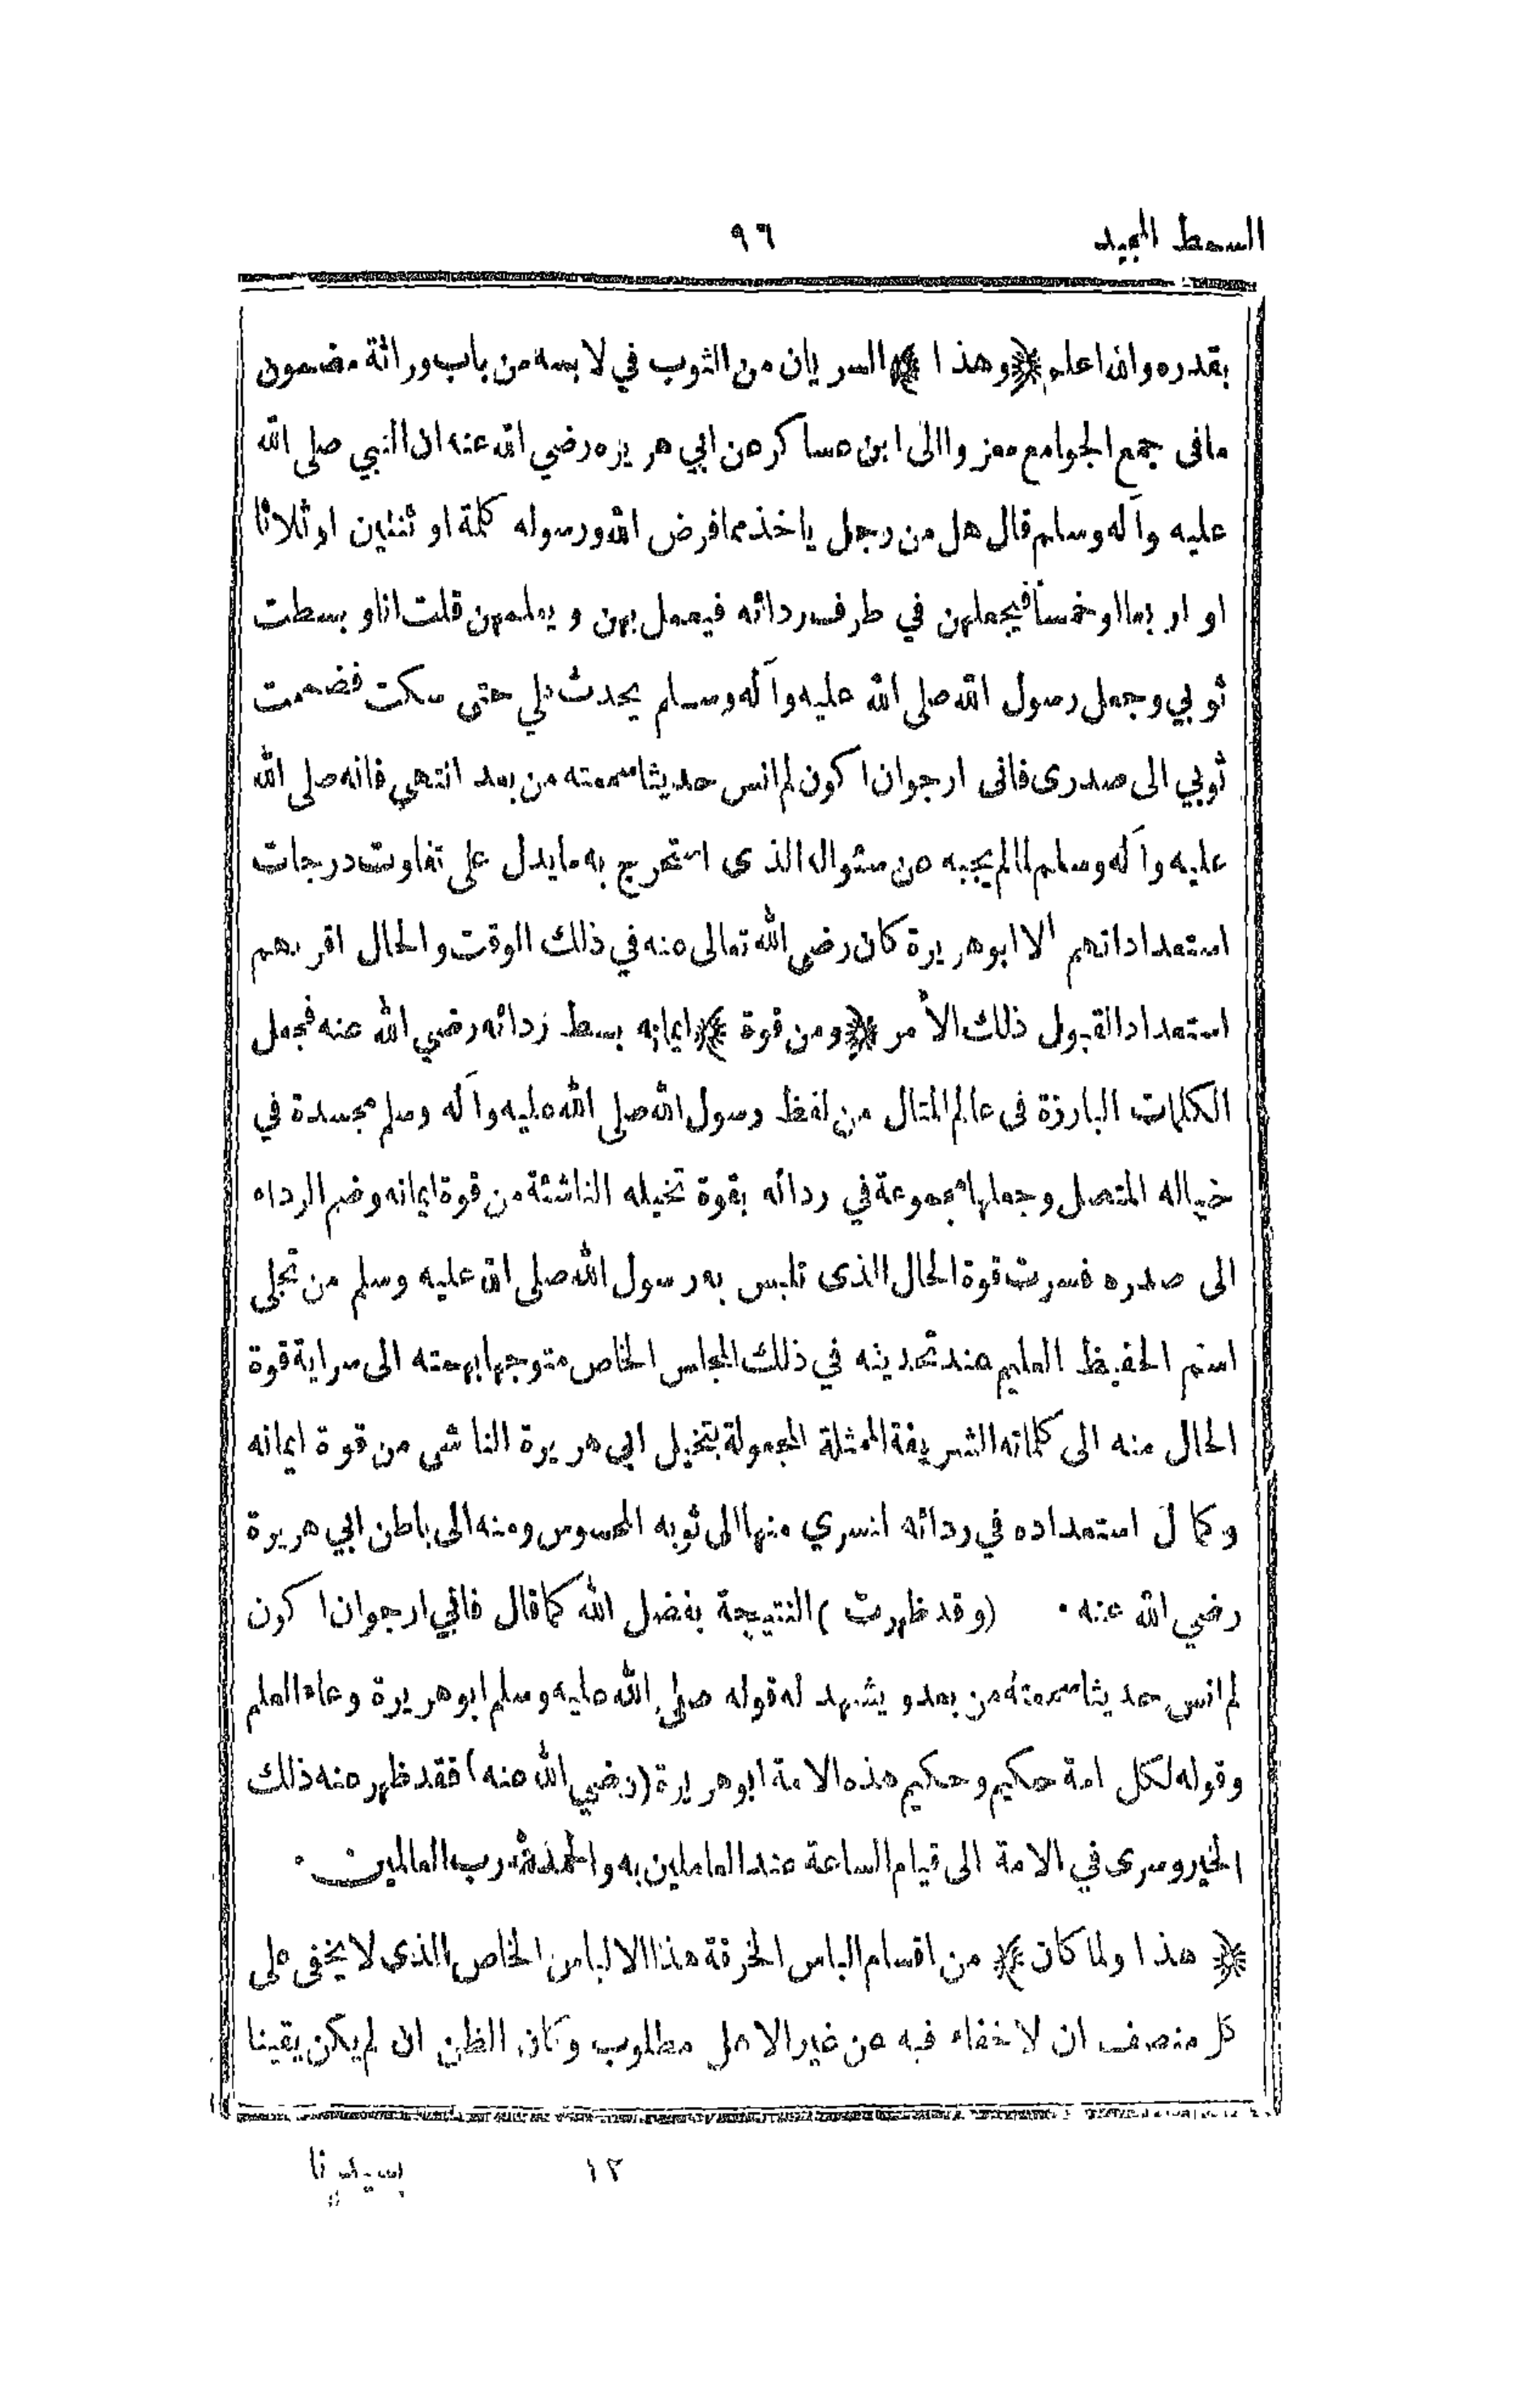 السمط المجيد ٩٦
بقدره والله اعلم ﴿وهذا﴾ السريان من الثوب في لابسه من باب وراثة مضمون
مافى جمع الجوامع معزوا الى ابن عساكر عن ابي هريره رضي الله عنه ان النبي صلى الله
عليه وآله وسلم قال هل من رجل ياخذ مما فرض الله ورسوله كلمة او ثنتين او ثلاثا
او اربعا او خمسا فيجعلهن في طرف ردائه فيعمل بهن و يعلمهن قلت انا و بسطت
ثوبي وجعل رسول الله صلى الله عليه وآله وسلم يحدث حتى سكت فضممت
ثوبي الى صدرى فانى ارجوان اكون لم انس حديثا سمعته من بعد انتهي فانه صلى الله
عليه وآله وسلم لما لم يجبه عن سئواله الذى استخرج به مايدل على تفاوت درجات
استعداداتهم الا ابوهريرة كان رضى الله تعالى عنه في ذلك الوقت والحال اقربهم
استعدادا لقبول ذلك الأمر ﴿ومن قوة﴾ ايمانه بسط ردائه رضي الله عنه فجعل
الكلمات البارزة فى عالم المثال من لفظ رسول الله صلى الله عليه وآله وسلم مجسدة في
خياله المتصل وجعلها مجموعة في ردائه بقوة تخيله الناشئة من قوة ايمانه وضم الرداء
الى صدره فسرت قوة الحال الذى تلبس به رسول الله صلى الله عليه وسلم من تجلى
اسم الحفيظ العليم عند تحديثه في ذلك المجلس الخاص متوجها بهمته الى سراية قوة
الحال منه الى كلماته الشريفة الممثلة المجعولة بتخيل ابى هريرة الناشى من قوة ايمانه
وكمال استعداده في ردائه لتسري منها الى ثوبه المحسوس ومنه الى باطن ابي هريرة
رضي الله عنه ٠ (وقد ظهرت) النتيجة بفضل الله كما قال فاني ارجوان اكون
لم انس حديثا سمعته من بعد و يشهد له قوله صلى الله عليه وسلم ابوهريرة وعاء العلم
وقوله لكل امة حكيم وحكيم هذه الامة ابوهريرة (رضي الله عنه) فقد ظهر عنه ذلك
الخير وسرى في الامة الى قيام الساعة عند العاملين به والحمد لله رب العالمين ٠
﴿هذا ولما كان﴾ من اقسام الباس الخرقة هذا الالباس الخاص الذى لا يخفى على
كل منصف ان لا خفاء فيه عن غير الاهل مطلوب وكان الظن ان لم يكن يقينا
١٢ بسيدنا